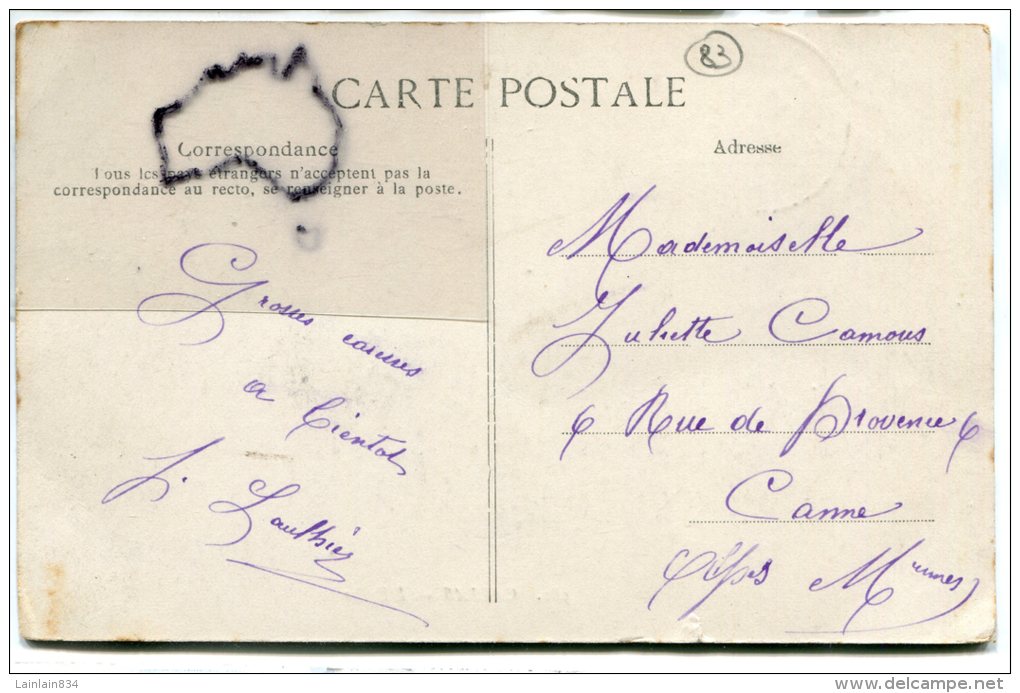 83
CARTE POSTALE
Correspondance
Tous les pays étrangers n'acceptent pas la
correspondance au recto, se renseigner à la poste.
Adresse
Grosses caresses
a bientot
J. Gauthier
Mademoiselle
Juliette Camous
6 Rue de Provence 6
Canne
Alpes Mmes
Lainlain834
delcampe.net